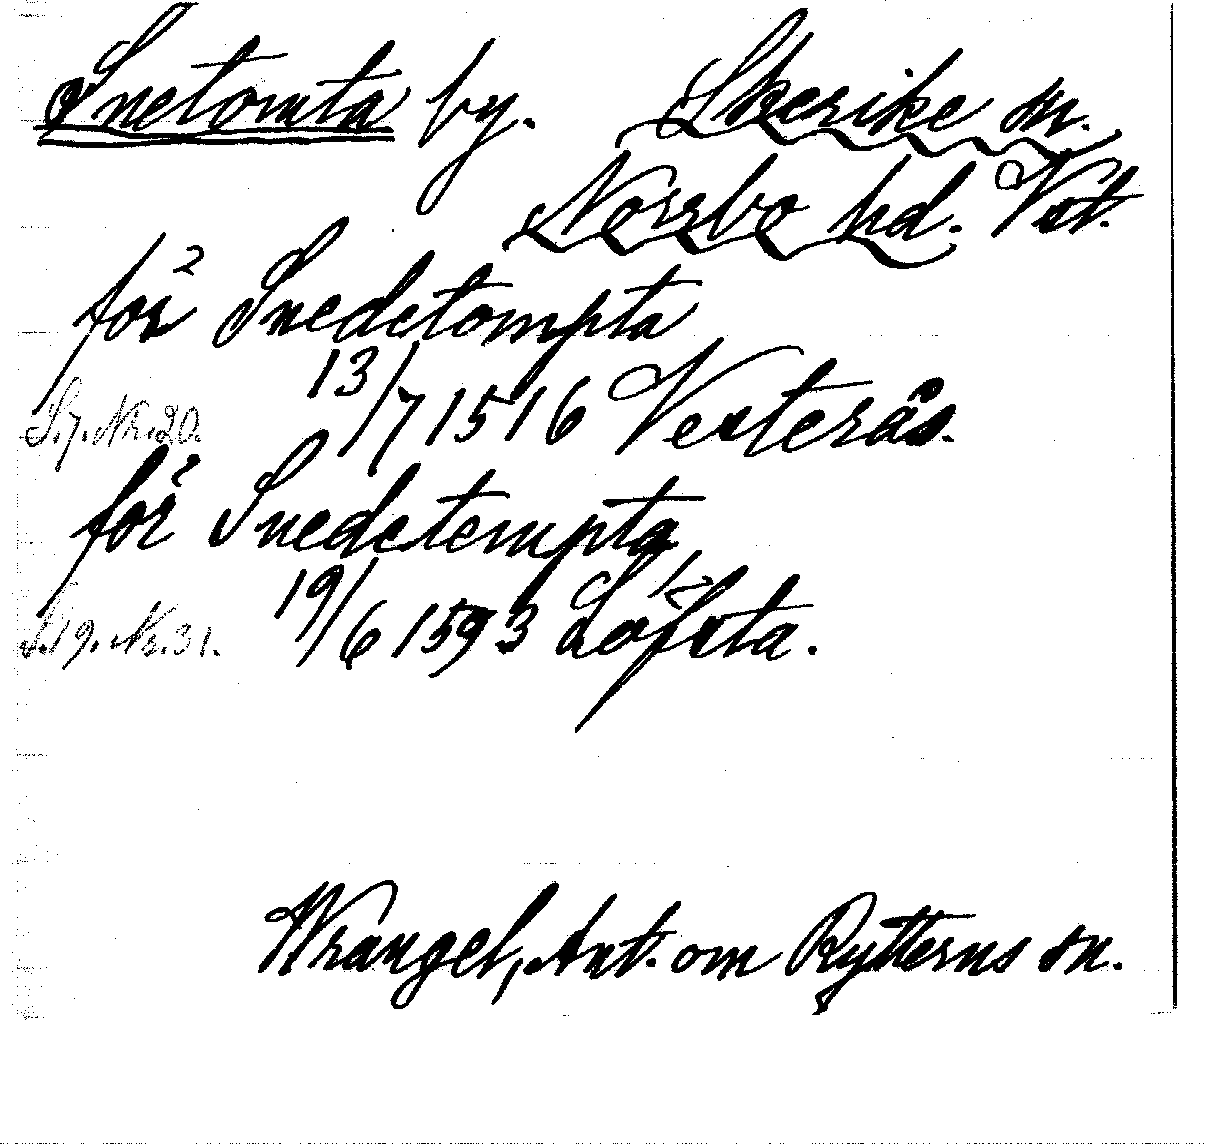 Snetomta by. Skerike sn.
Norrbo hd. Vstm.
för Snedetompta
13/7 1516 Vesterås.
S. 7. Nr. 20.
för Snedetempta
19/6 1593 Löfsta.
S. 19. Nr. 31.
Wrangel, Ant. om Rytterns sn.